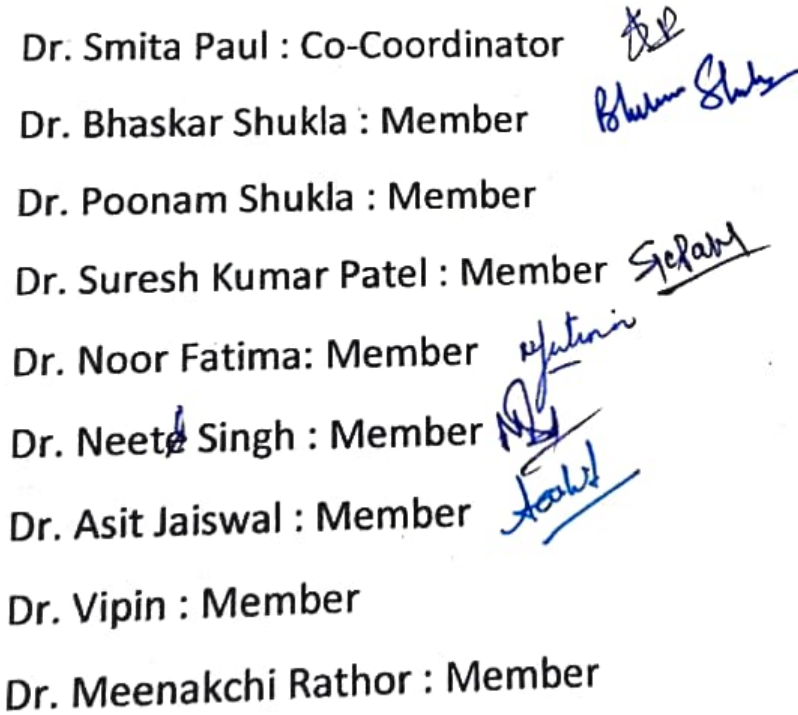 Dr. Smita Paul : Co-Coordinator
Dr. Bhaskar Shukla : Member
Dr. Poonam Shukla : Member
Dr. Suresh Kumar Patel : Member
Dr. Noor Fatima: Member
Dr. Singh : Member
Dr. Asit Jaiswal : Member
Dr. Vipin : Member
Dr. Meenakchi Rathor : Member